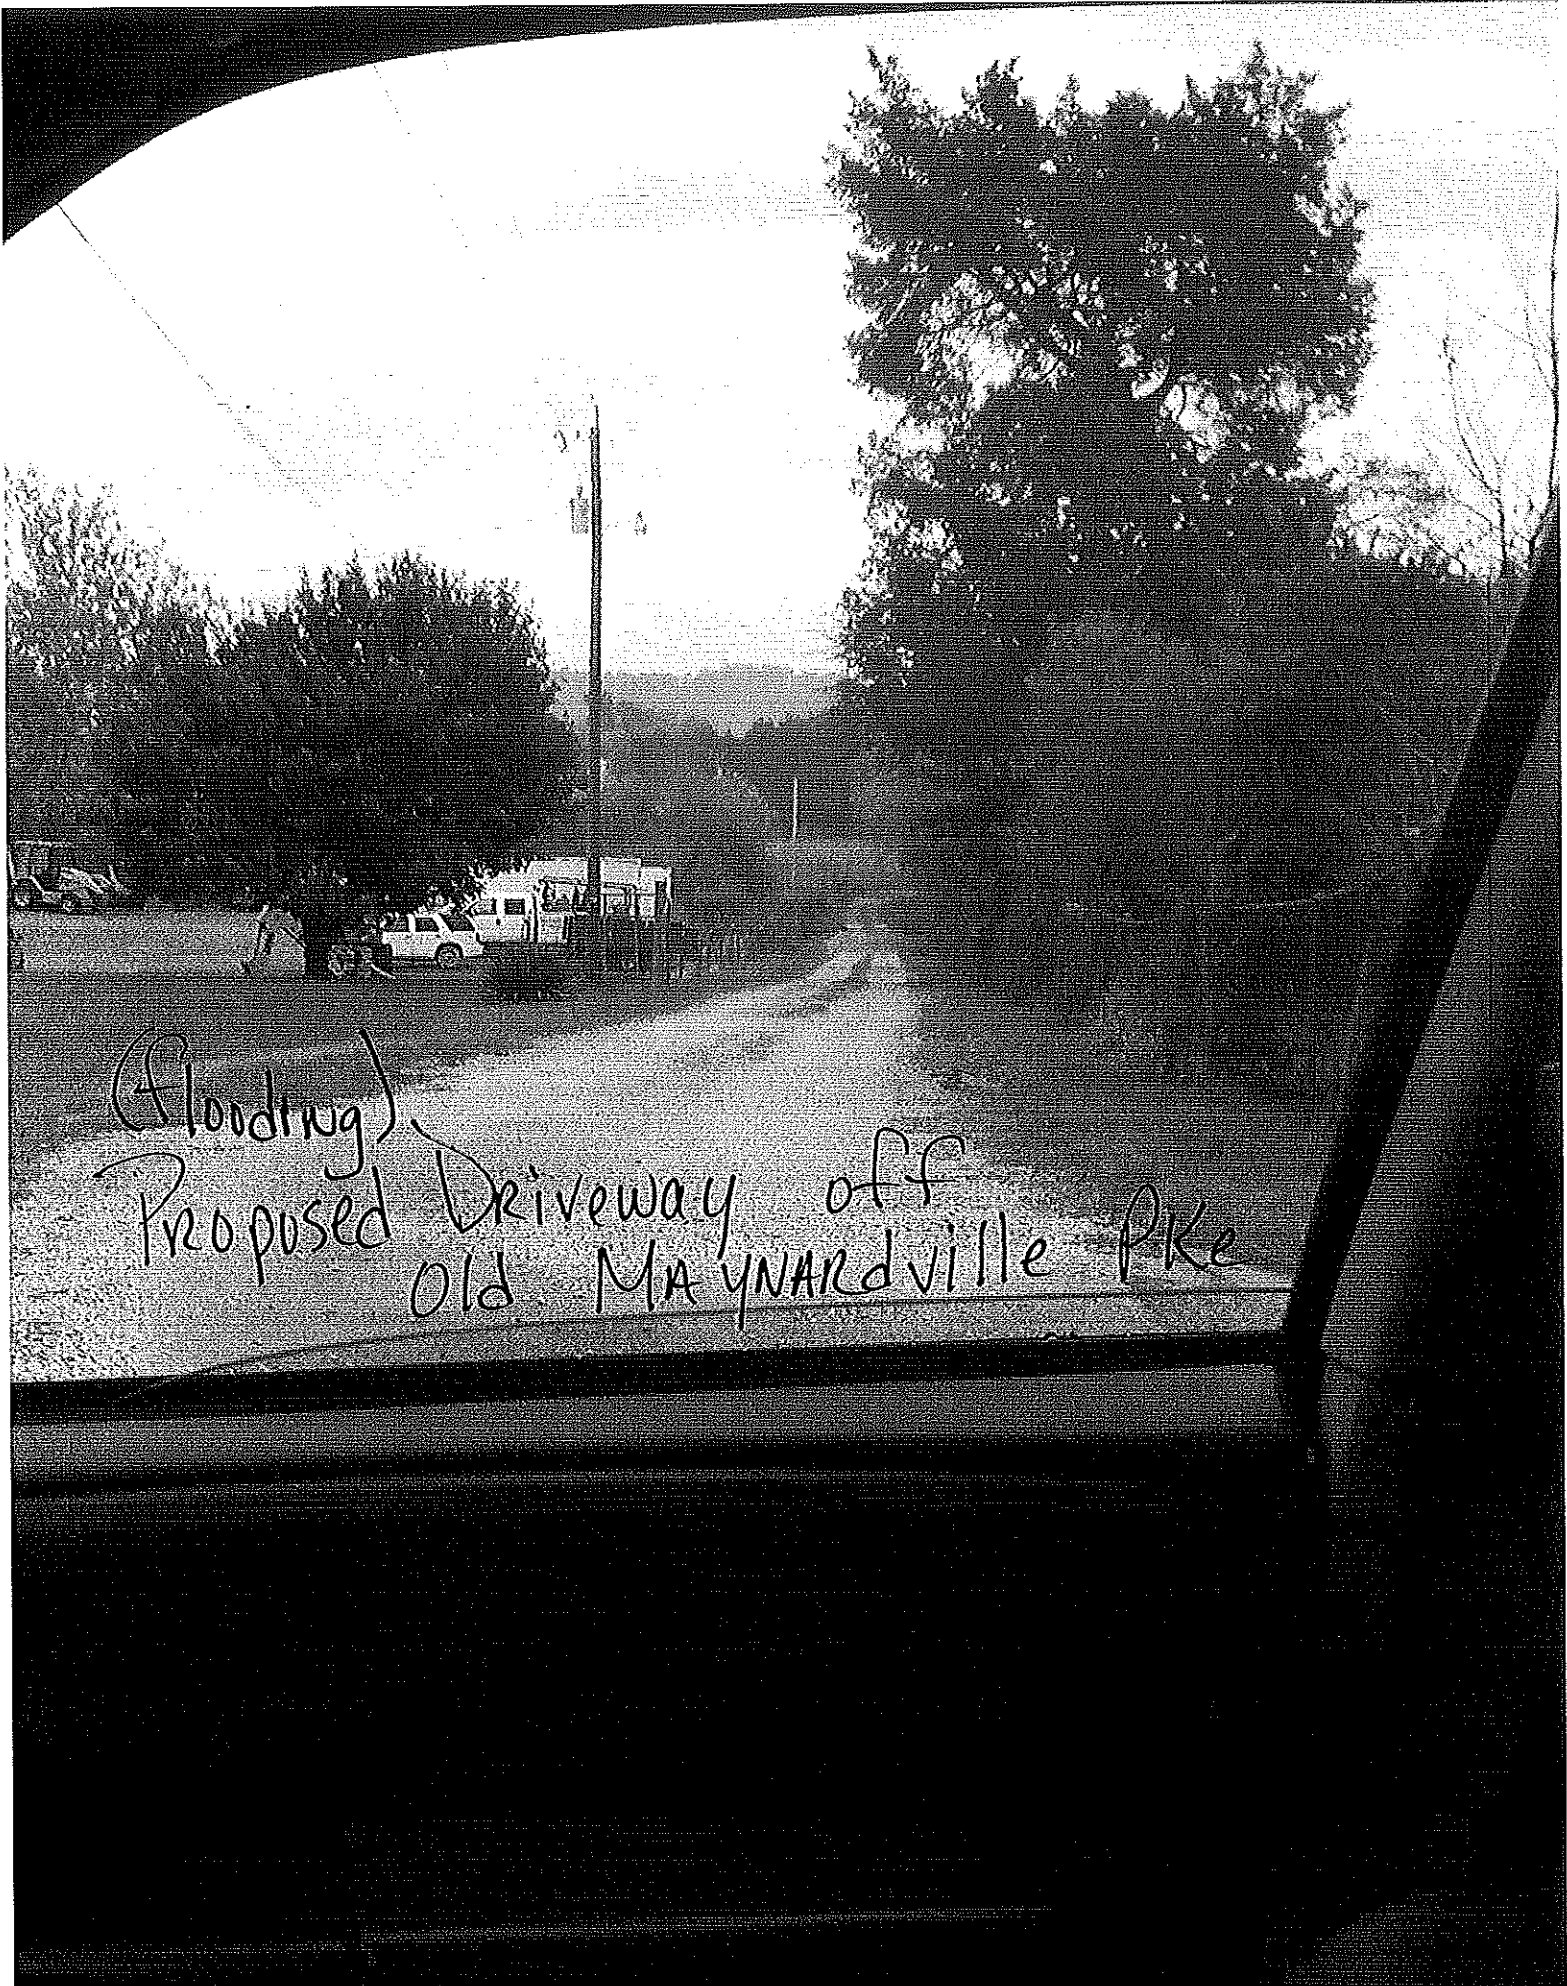 (flooding)
Proposed Driveway off
Old Maynardville Pke